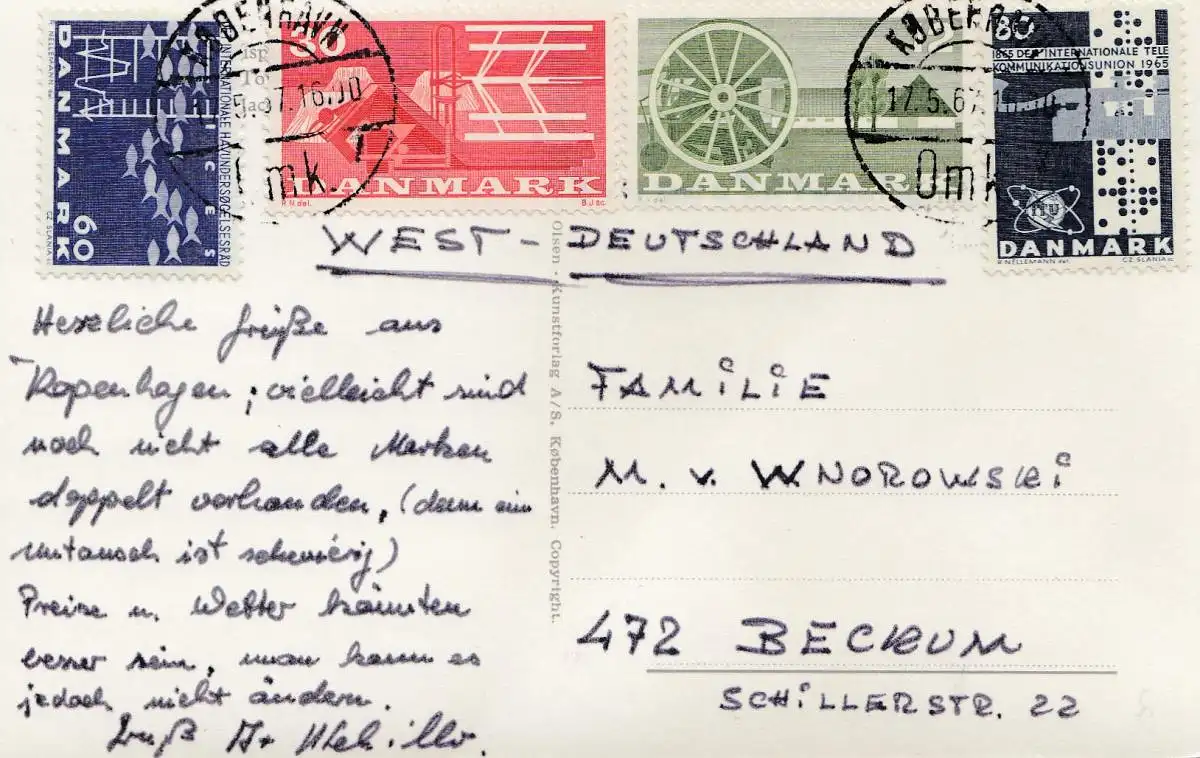 KØBENHAVN
17.5.67.16.00
Omk. 1
KØBENHAVN
17.5.67
Omk
DANMARK
60
ICES
INTERNATIONALE HAVUNDERSØGELSESRÅD
CZ.SLANIA
30
DANMARK
R.N del.
B.J sc.
DANMARK
80
1865 DEN INTERNATIONALE TELE
KOMMUNIKATIONSUNION 1965
ITU
DANMARK
R.NELLEMANN del.
CZ.SLANIA sc.
WEST-DEUTSCHLAND
Herzliche Grüße aus
Kopenhagen; vielleicht sind
noch nicht alle Marken
doppelt vorhanden, (denn ein
Umtausch ist schwierig)
Preise u. Wetter könnten
besser sein, man kann es
jedoch nicht ändern.
Gruß
Olsen - Kunstforlag A/S. København. Copyright.
FAMILIE
M. v. WNOROWSKI
472 BECKUM
SCHILLERSTR. 22